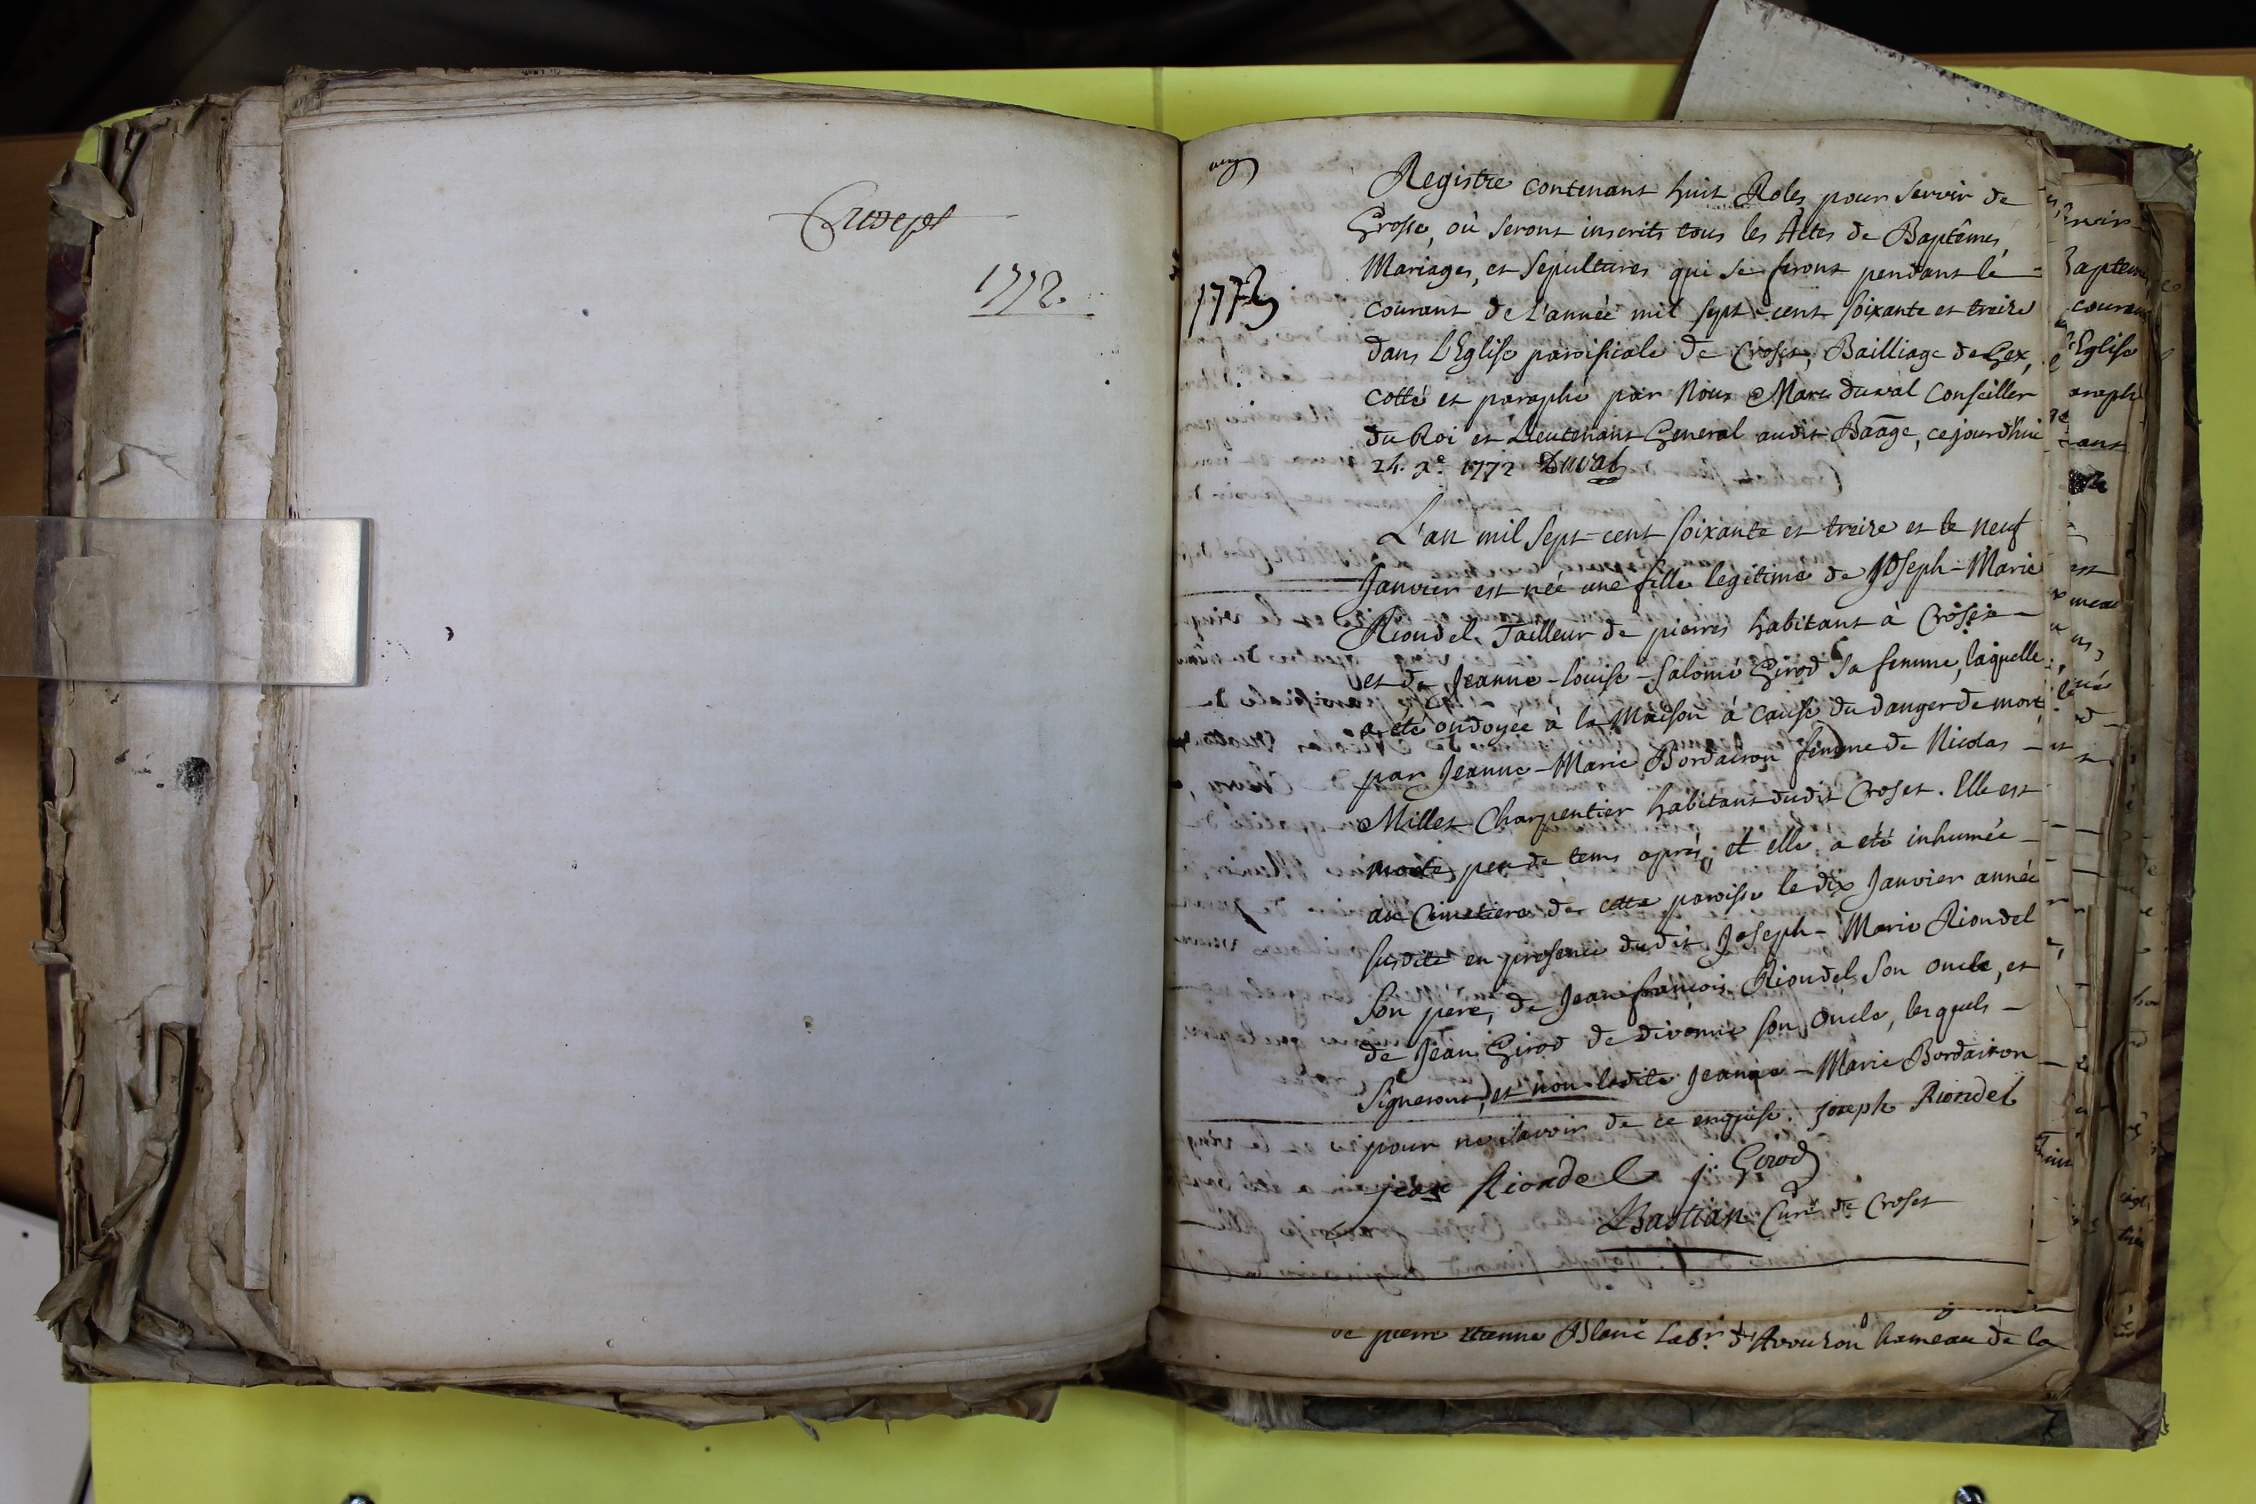 1772.
1773
Registre contenant huit Roles pour servir de
Grosse, où seront inscrits tous les Actes de Baptêmes,
Mariages, et Sepultures qui se feront pendant le
courant de L'année mil sept-cent soixante et treize
dans L'Eglise paroissiale de Croset, Bailliage de Gex,
cotté et paraphé par Nous Marc Duval Conseiller
du Roi et Lieutenant General audit Baãge, cejourd'hui
24. Xe. 1772 Duval
L'an mil sept-cent soixante et treize et le neuf
Janvier est née une fille legitime de Joseph-Marie
Riondel Tailleur de pierres habitant à Croset
et de Jeanne-Louise-Salomé Girod sa femme, laquelle
a été ondoyée à la Maison à cause du danger de mort
par Jeanne-Marie Bordairon femme de Nicolas
Millet Charpentier habitant dudit Croset. Elle est
morte peu de tems après, et elle a été inhumée
au Cimetiere de cette paroisse le dix Janvier année
susdite en presence dudit Joseph-Marie Riondel
son pere, de Jean françois Riondel son oncle, et
de Jean Girod de divonne son Oncle, lesquels
signeront, et non ladite Jeanne-Marie Bordairon
pour ne savoir de ce enquise. Joseph Riondel
jean Riondel j. Girod
Bastian Curé de Croset
de pierre Etienne Blanc Labr. d'Avouzon hameau de la